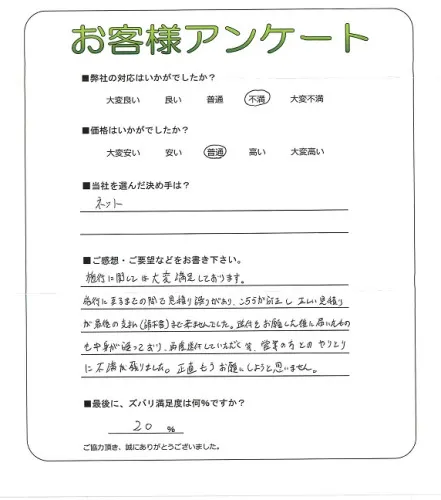 お客様アンケート
■弊社の対応はいかがでしたか？
大変良い 良い 普通 不満 大変不満
■価格はいかがでしたか？
大変安い 安い 普通 高い 大変高い
■当社を選んだ決め手は？
ネット
■ご感想・ご要望などをお書き下さい。
施行に関しては大変満足しております。
施行に至るまでの間で見積り誤りがあり、こちらが訂正し正しい見積り
が最後の支払(請求書)まで来ませんでした。送付をお願いした後に届いたもの
も中身が違っており、再度送付していただく等、営業の方とのやりとり
に不満が残りました。正直もうお願いしようと思いません。
■最後に、ズバリ満足度は何％ですか？
20 ％
ご協力頂き、誠にありがとうございました。